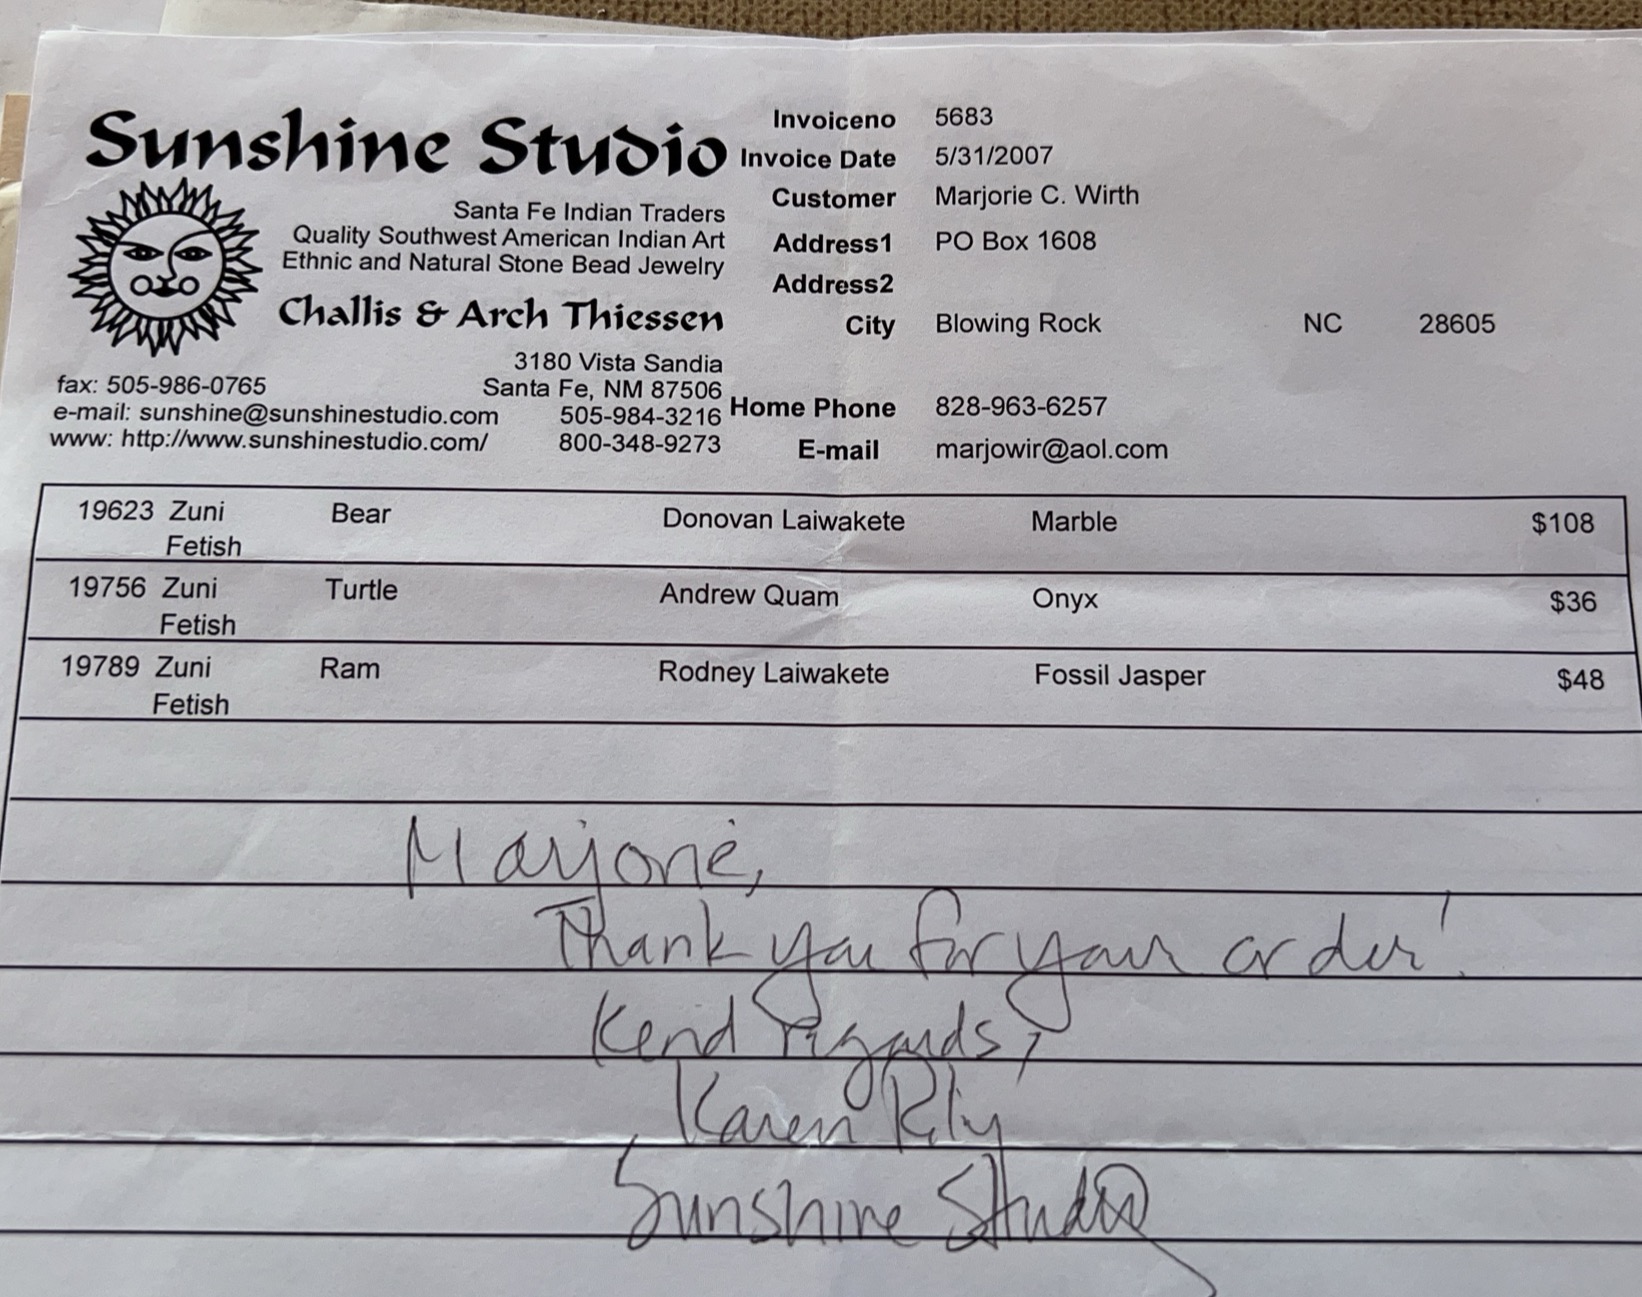 Sunshine Studio
Santa Fe Indian Traders
Quality Southwest American Indian Art
Ethnic and Natural Stone Bead Jewelry
Challis & Arch Thiessen
3180 Vista Sandia
fax: 505-986-0765 Santa Fe, NM 87506
e-mail: sunshine@sunshinestudio.com 505-984-3216
www: http://www.sunshinestudio.com/ 800-348-9273
Invoiceno 5683
Invoice Date 5/31/2007
Customer Marjorie C. Wirth
Address1 PO Box 1608
Address2
City Blowing Rock NC 28605
Home Phone 828-963-6257
E-mail marjowir@aol.com
19623 Zuni Bear Donovan Laiwakete Marble $108
Fetish
19756 Zuni Turtle Andrew Quam Onyx $36
Fetish
19789 Zuni Ram Rodney Laiwakete Fossil Jasper $48
Fetish
Marjorie,
Thank you for your order!
Kind regards,
Karen
Sunshine Studio